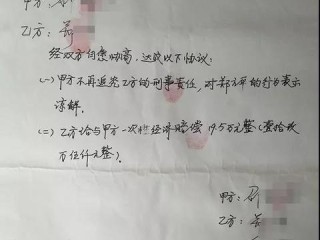 甲方:
乙方:
经双方自愿协商,达成以下协议:
(一)甲方不再追究乙方的刑事责任,对郑方平的行为表示
谅解。
(二)乙方给与甲方一次性经济赔偿 19.5万元整(壹拾玖
万伍仟元整)。
甲方:
乙方: